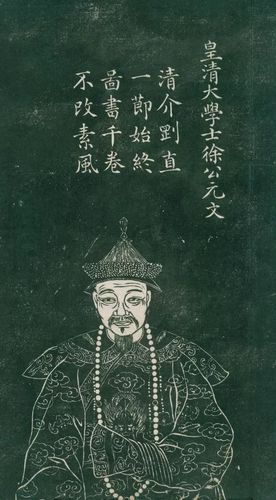 皇清大學士徐公元文
清介剛直
一節始終
啚書千卷
不改素風